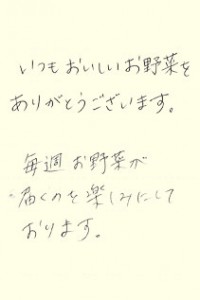 いつもおいしいお野菜を
ありがとうございます。
毎週お野菜が
届くのを楽しみにして
おります。